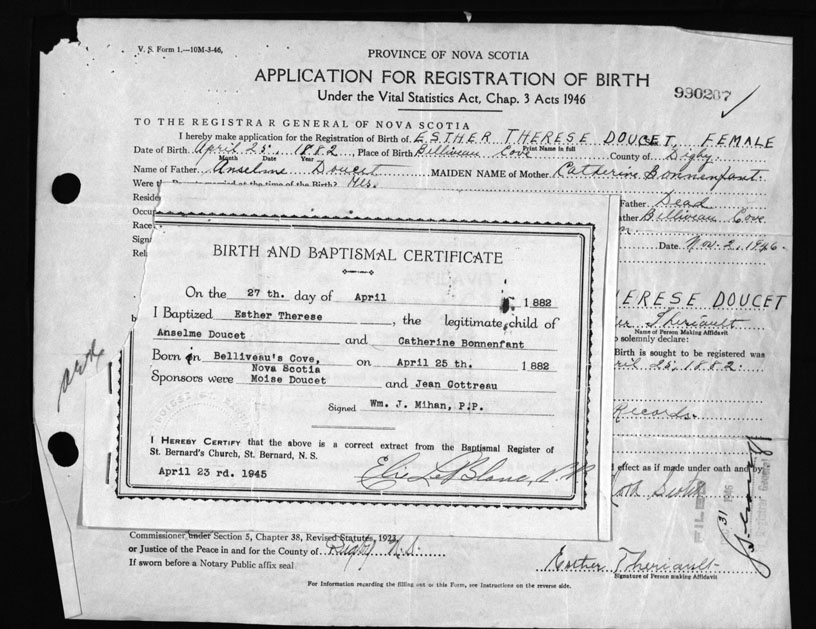 V. S. Form 1.—10M-3-46.
PROVINCE OF NOVA SCOTIA
APPLICATION FOR REGISTRATION OF BIRTH
Under the Vital Statistics Act, Chap. 3 Acts 1946
990207
TO THE REGISTRAR GENERAL OF NOVA SCOTIA
I hereby make application for the Registration of Birth of ESTHER THERESE DOUCET, FEMALE
Print Name in full
Date of Birth April 25, 1882 Place of Birth Belliveau Cove County of Digby
Month Date Year
Name of Father Anselme Doucet MAIDEN NAME of Mother Catherine Bonnenfant.
Were the at the time of the Birth? Yes.
Resid Father Dead
Occu ather Belliveau Cove
Race
Signa Date Nov. 2, 1946
Reli
BIRTH AND BAPTISMAL CERTIFICATE
On the 27 th. day of April 1882
I Baptized Esther Therese, the legitimate child of
Anselme Doucet and Catherine Bonmenfant
Born in Belliveau's Cove, on April 25 th. 1882
Nova Scotia
Sponsors were Moise Doucet and Jean Gottreau
Signed Wm. J. Mihan, P.P.
I HEREBY CERTIFY that the above is a correct extract from the Baptismal Register of
St. Bernard's Church, St. Bernard, N. S.
April 23 rd. 1945
Elie LeBlanc
ERESE DOUCET
Theriault
Name of Person Making Affidavit
solemnly declare:
Birth is sought to be registered was
ril 25, 1882.
Records.
effect as if made under oath and by
Nova Scotia
FILED
31 1946
Commissioner under Section 5, Chapter 38, Revised Statutes, 1923,
or Justice of the Peace in and for the County of Digby N.S.
If sworn before a Notary Public affix seal
Esther Theriault
Signature of Person making Affidavit
For Information regarding the filling out of this Form, see Instructions on the reverse side.